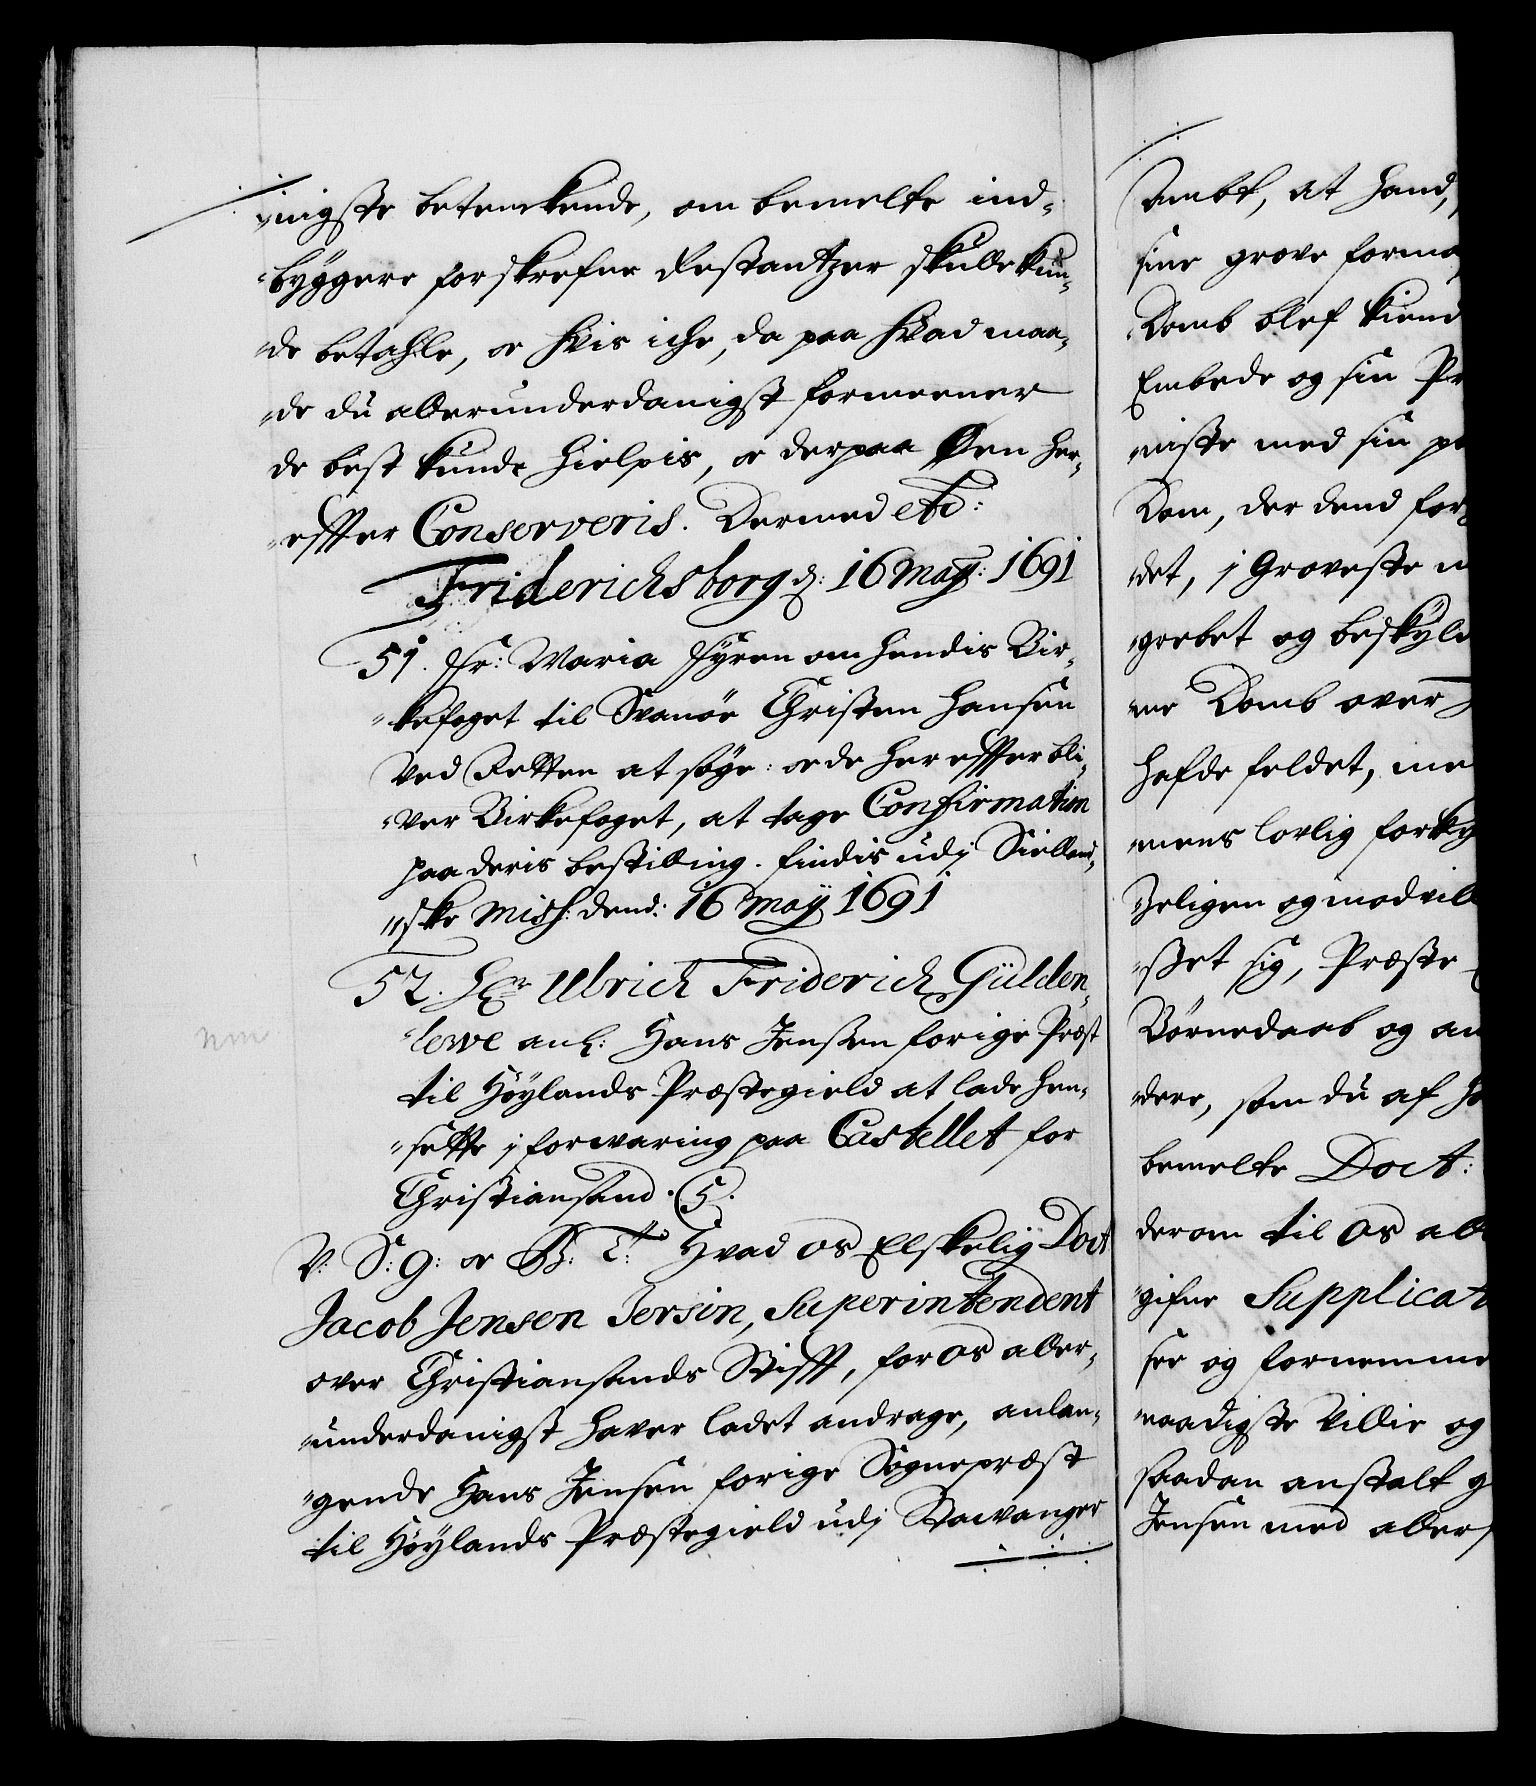 nigste betenckende, om bemelte ind-
byggere forskrefne Restantzer skulle kun-
de betahle, oc hvis iche, da paa hvad maa-
de du allerunderdanigst formeener
de best kunde hielpis, oc derpaa Øen her-
effter Conserveris. Dermed etc:
Friderichsborg d: 16 Maÿ: 1691
51. Fr: Maria Fyren om hendis Bir-
kefoget til Svanöe Christen Hansen
ved Retten at söge: oc de her effter bli-
ver Birkefoget, at tage Confirmation
paa deris bestilling. findis udj Sielland-
ske Miss: dend: 16 Maÿ 1691
52. Hr Ulrich Friderich Gülden-
lewe anl: Hans Jensen forige Præst
til Höylands Præstegield at lade hen-
sette j forwaring paa Castellet for
Christiansand. S.
V: S: g: oc B: T: Hvad os Elskelig Doct
Jacob Jensen Jersin, Superintendent
over Christiansands Stifft, for os aller-
underdanigst haver ladet andrage, anlan-
gende Hans Jensen forige Sognepræst
til Höylands Præstegield udj Stawanger
Ambt, at hand,
sine grove forma
Domb blef kiend
Embede og sin Pr
miste med sin p
Dom, der dend for
det, j Groveste m
grebet og beskyld
me Domb over
hafde feldet, me
mens lovlig forky
zeligen og modvill
stet sig, Præste
Börnedaab og an
dere, som du af h
bemelte Doct:
derom til Os all
gifne Supplicat
see og fornemme
naadigste Villie og
saadan anstalt g
Jensen med aller